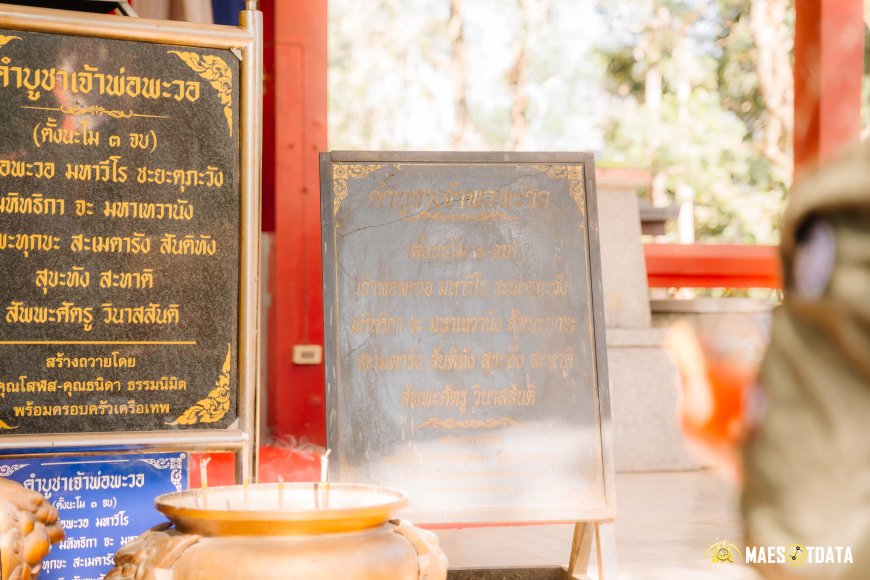 คำบูชาเจ้าพ่อพะวอ
(ตั้งนะโม ๓ จบ)
พะวอ มหาวีโร ชะยะตุภะวัง
มหิทธิกา จะ มหาเทวานัง
สะเมตารัง สันติทัง
สุขะทัง สะทาติ
สัพพะศัตรู วินาสสันติ
สร้างถวายโดย
คุณโสฬส-คุณธนิดา ธรรมนิมิต
พร้อมครอบครัวเครือเทพ
คำบูชาเจ้าพ่อพะวอ
(ตั้งนะโม ๓ จบ)
พ่อพะวอ มหาวีโร
มหิทธิกา จะ
ทุกขะ สะเมตารัง
คำบูชาเจ้าพ่อพะวอ
(ตั้งนะโม ๓ จบ)
เจ้าพ่อพะวอ มหาวีโร ชะยะตุภะวัง
มหิทธิกา จะ มหาเทวานัง
สะเมตารัง สันติทัง สุขะทัง
สัพพะศัตรู วินาสสันติ
MAESOTDATA